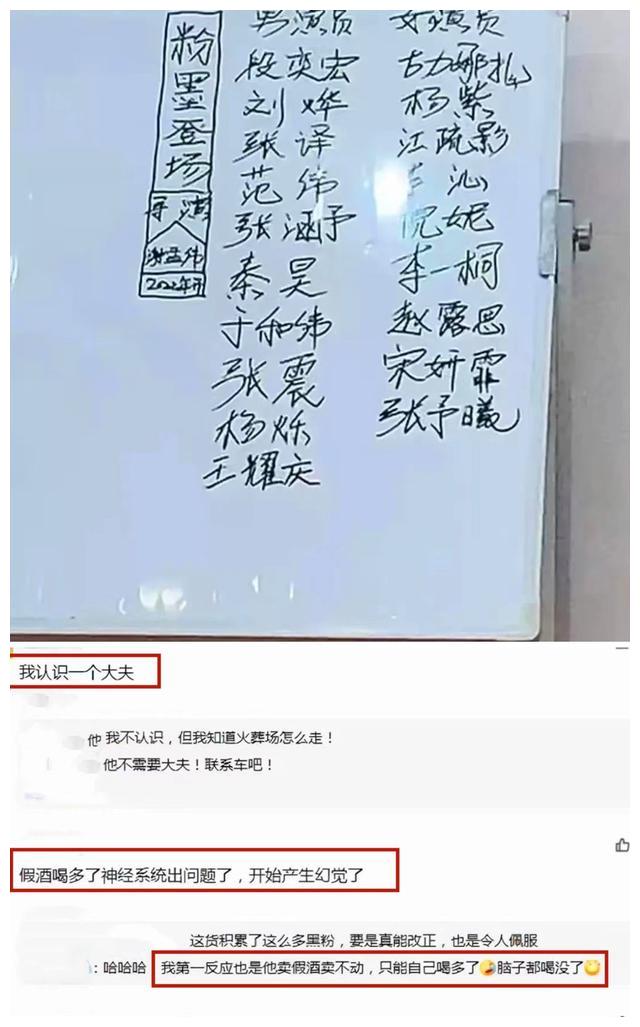 粉墨登场
导演人
谢孟伟
2022年开
男演员
段奕宏
刘烨
张译
范伟
张涵予
秦昊
于和伟
张震
杨烁
王耀庆
女演员
古力娜扎
杨紫
江疏影
沁
倪妮
李一桐
赵露思
宋妍霏
张予曦
我认识一个大夫
他 我不认识，但我知道火葬场怎么走！
他不需要大夫！联系车吧！
假酒喝多了神经系统出问题了，开始产生幻觉了
这货积累了这么多黑粉，要是真能改正，也是令人佩服
：哈哈哈 我第一反应也是他卖假酒卖不动，只能自己喝多了🤣脑子都喝没了